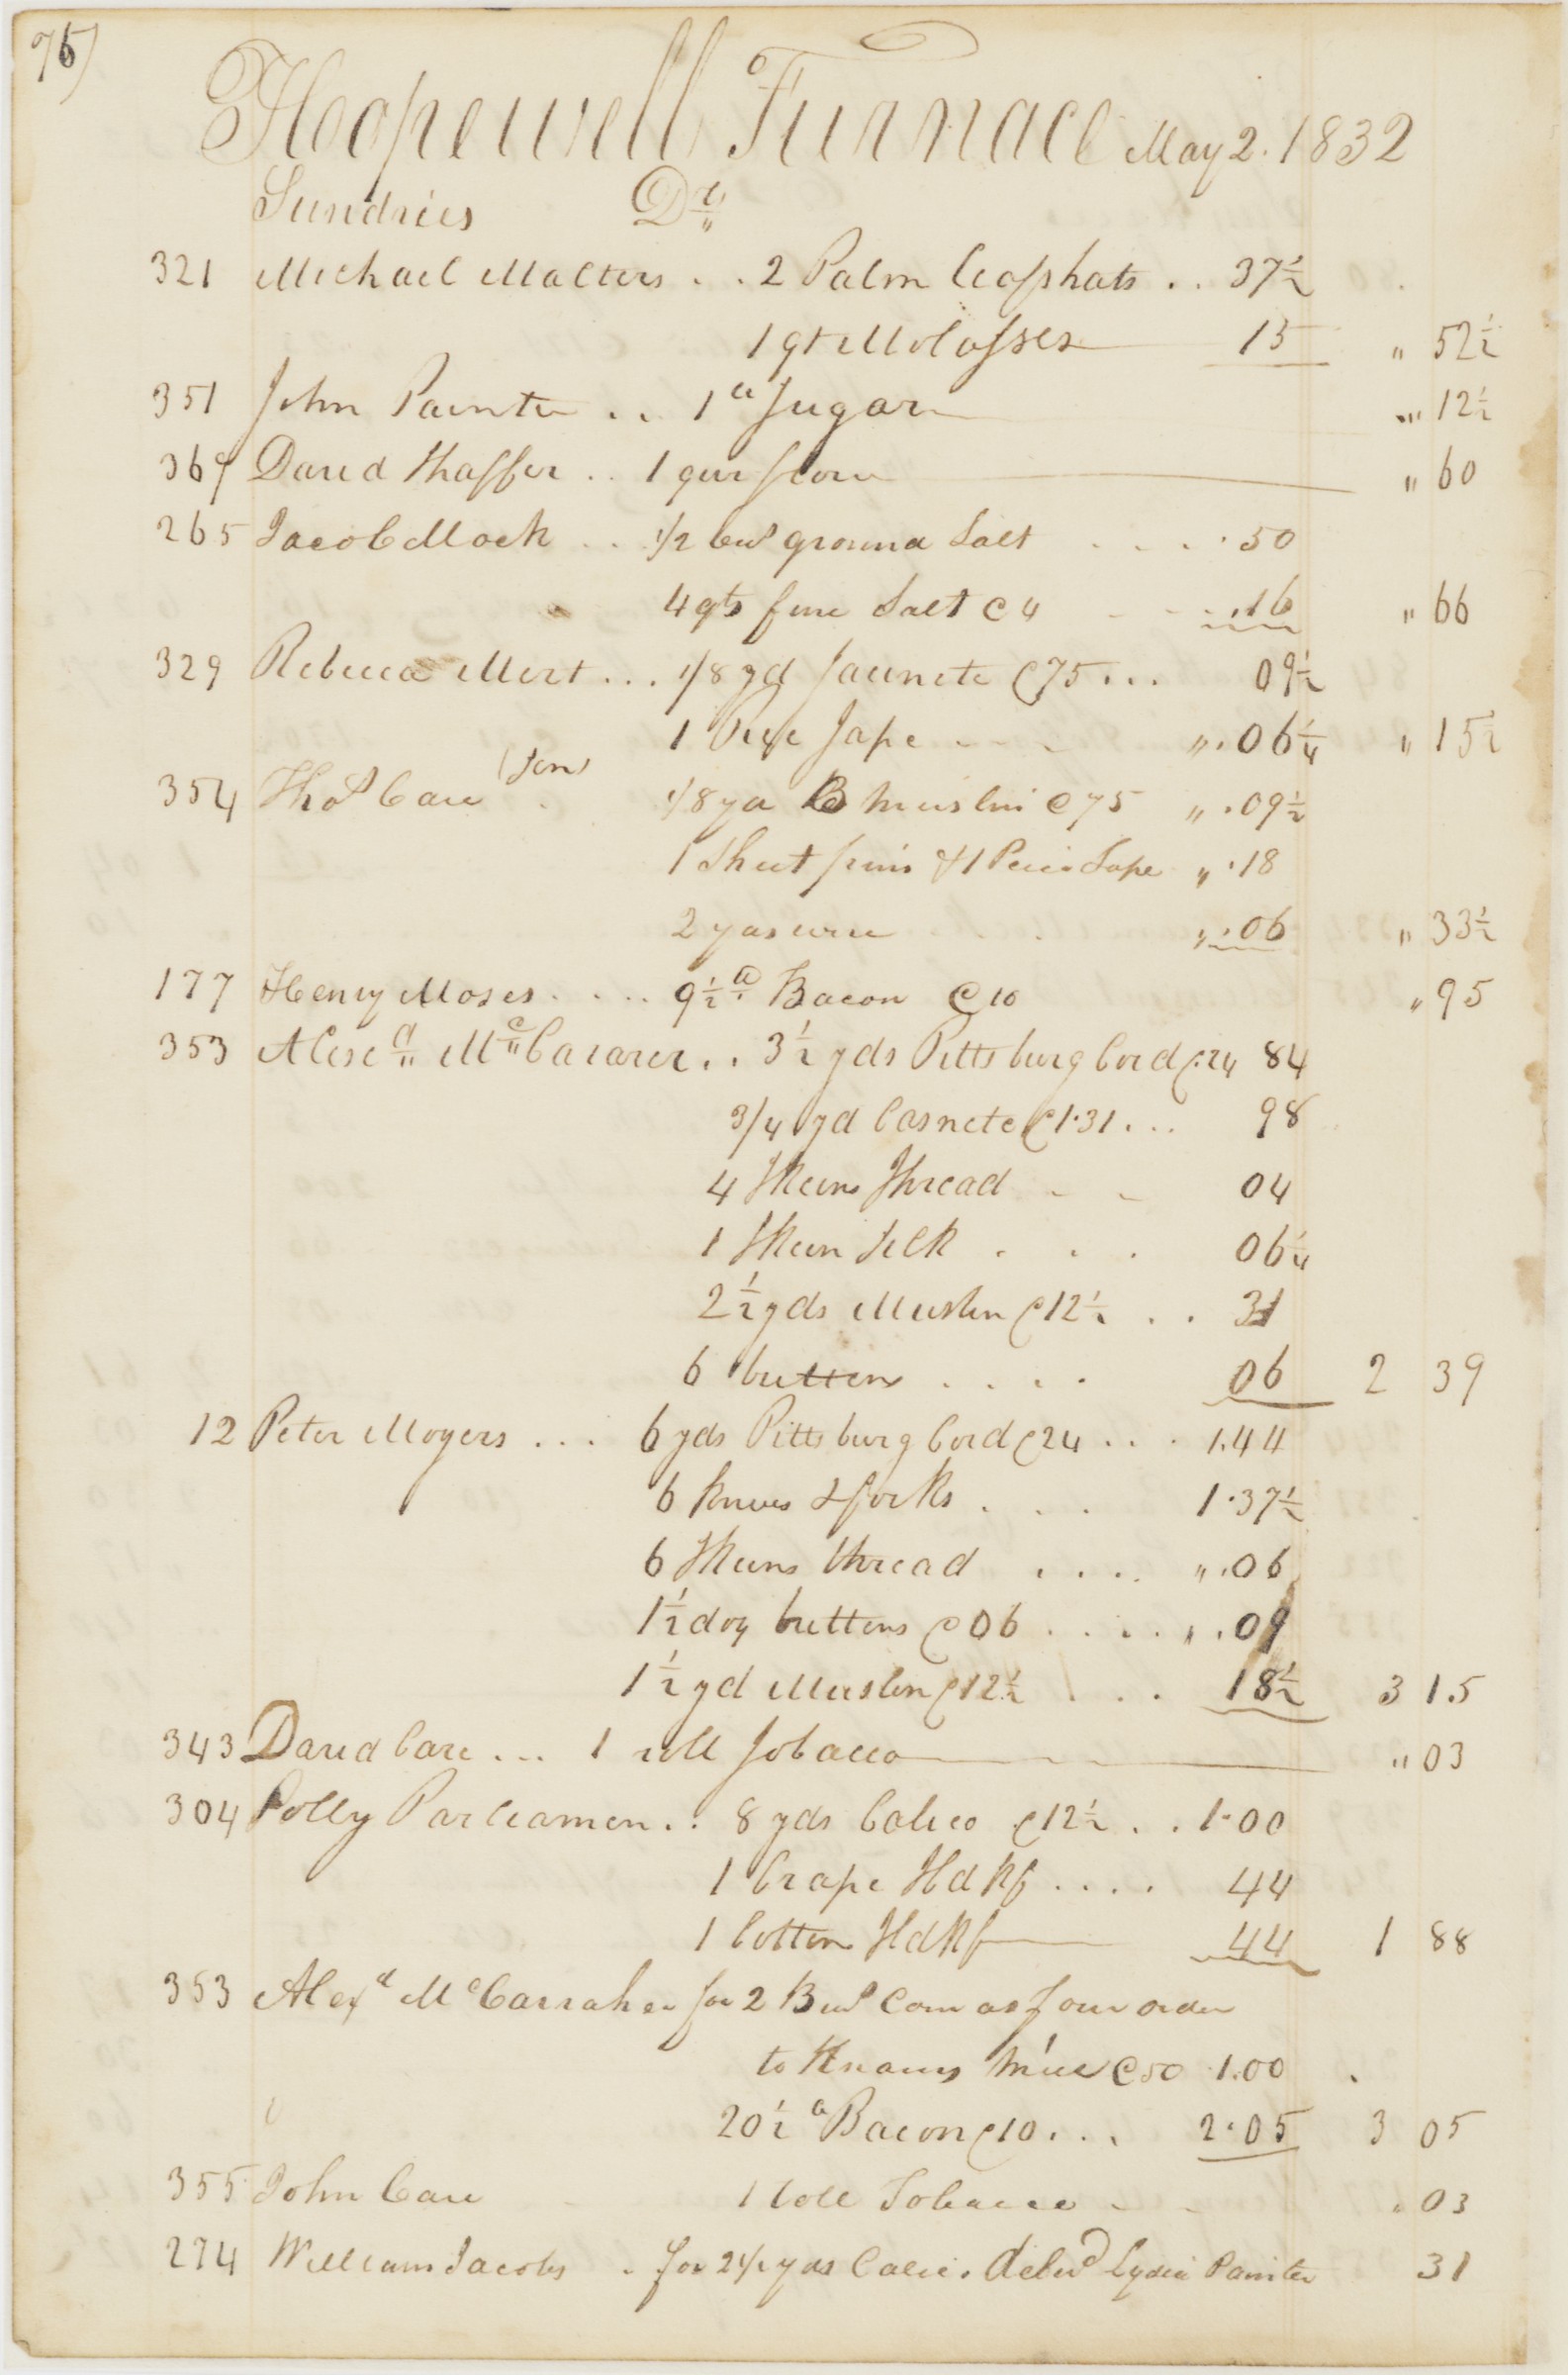 76)
Hopewell Furnace May 2. 1832
Sundries Dr
321 Michael Malters . . 2 Palm leafhats . . 37½
1 qt Molasses 15 " 52½
351 John Painter . . 1 lb Sugar " 12½
369 David Shaffer . . 1 qur flour " 60
265 Jacob Mock . . 1/2 bus ground Salt . . . . 50
4 qts fine Salt @ 4 . 16 " 66
329 Rebecca Mert . . . 1/8 yd Jacinete @ 75 . . . 09½
1 Piece Tape " . 06¼ " 15½
354 Thos Care (Son) 1/8 yd B Muslin @ 75 " . 09½
1 Sheet pins & 1 Peice Tape " . 18
2 yds wire " . 06 " 33½
177 Henry Moses . . . . 9½ lb Bacon @ 10 " 95
353 Alexd Mc Cararer . . 3½ yds Pittsburg Cord @ 24 84
3/4 yd Casnete @ 1.31 . . . 98
4 Skeins Thread 04
1 Skein Silk . . . 06¼
2½ yds Muslin @ 12½ . . 31
6 buttons . . . . 06 2 39
12 Peter Moyers . . . 6 yds Pittsburg Cord @ 24 . . . 1.44
6 knives & forks . . . 1.37½
6 Skeins thread . . . . " . 06
1½ doz buttons @ 06 . . . . " . 09
1½ yd Muslin @ 12½ . . . 18½ 3 15
343 David Care . . . 1 roll Tobacco " 03
304 Polly Parliamen . . 8 yds Calico @ 12½ . . 1.00
1 Crape Hdkf . . . . 44
1 Cotton Hdkf 44 1 88
353 Alexd McCarraher for 2 Bus Corn as your order
to @ 50 1.00
20½ lb Bacon @ 10 . . . 2.05 3 05
355 John Care 1 roll Tobacco " 03
274 William Jacobs . for 2½ yds Calico deliv'd Lydia Painter 31